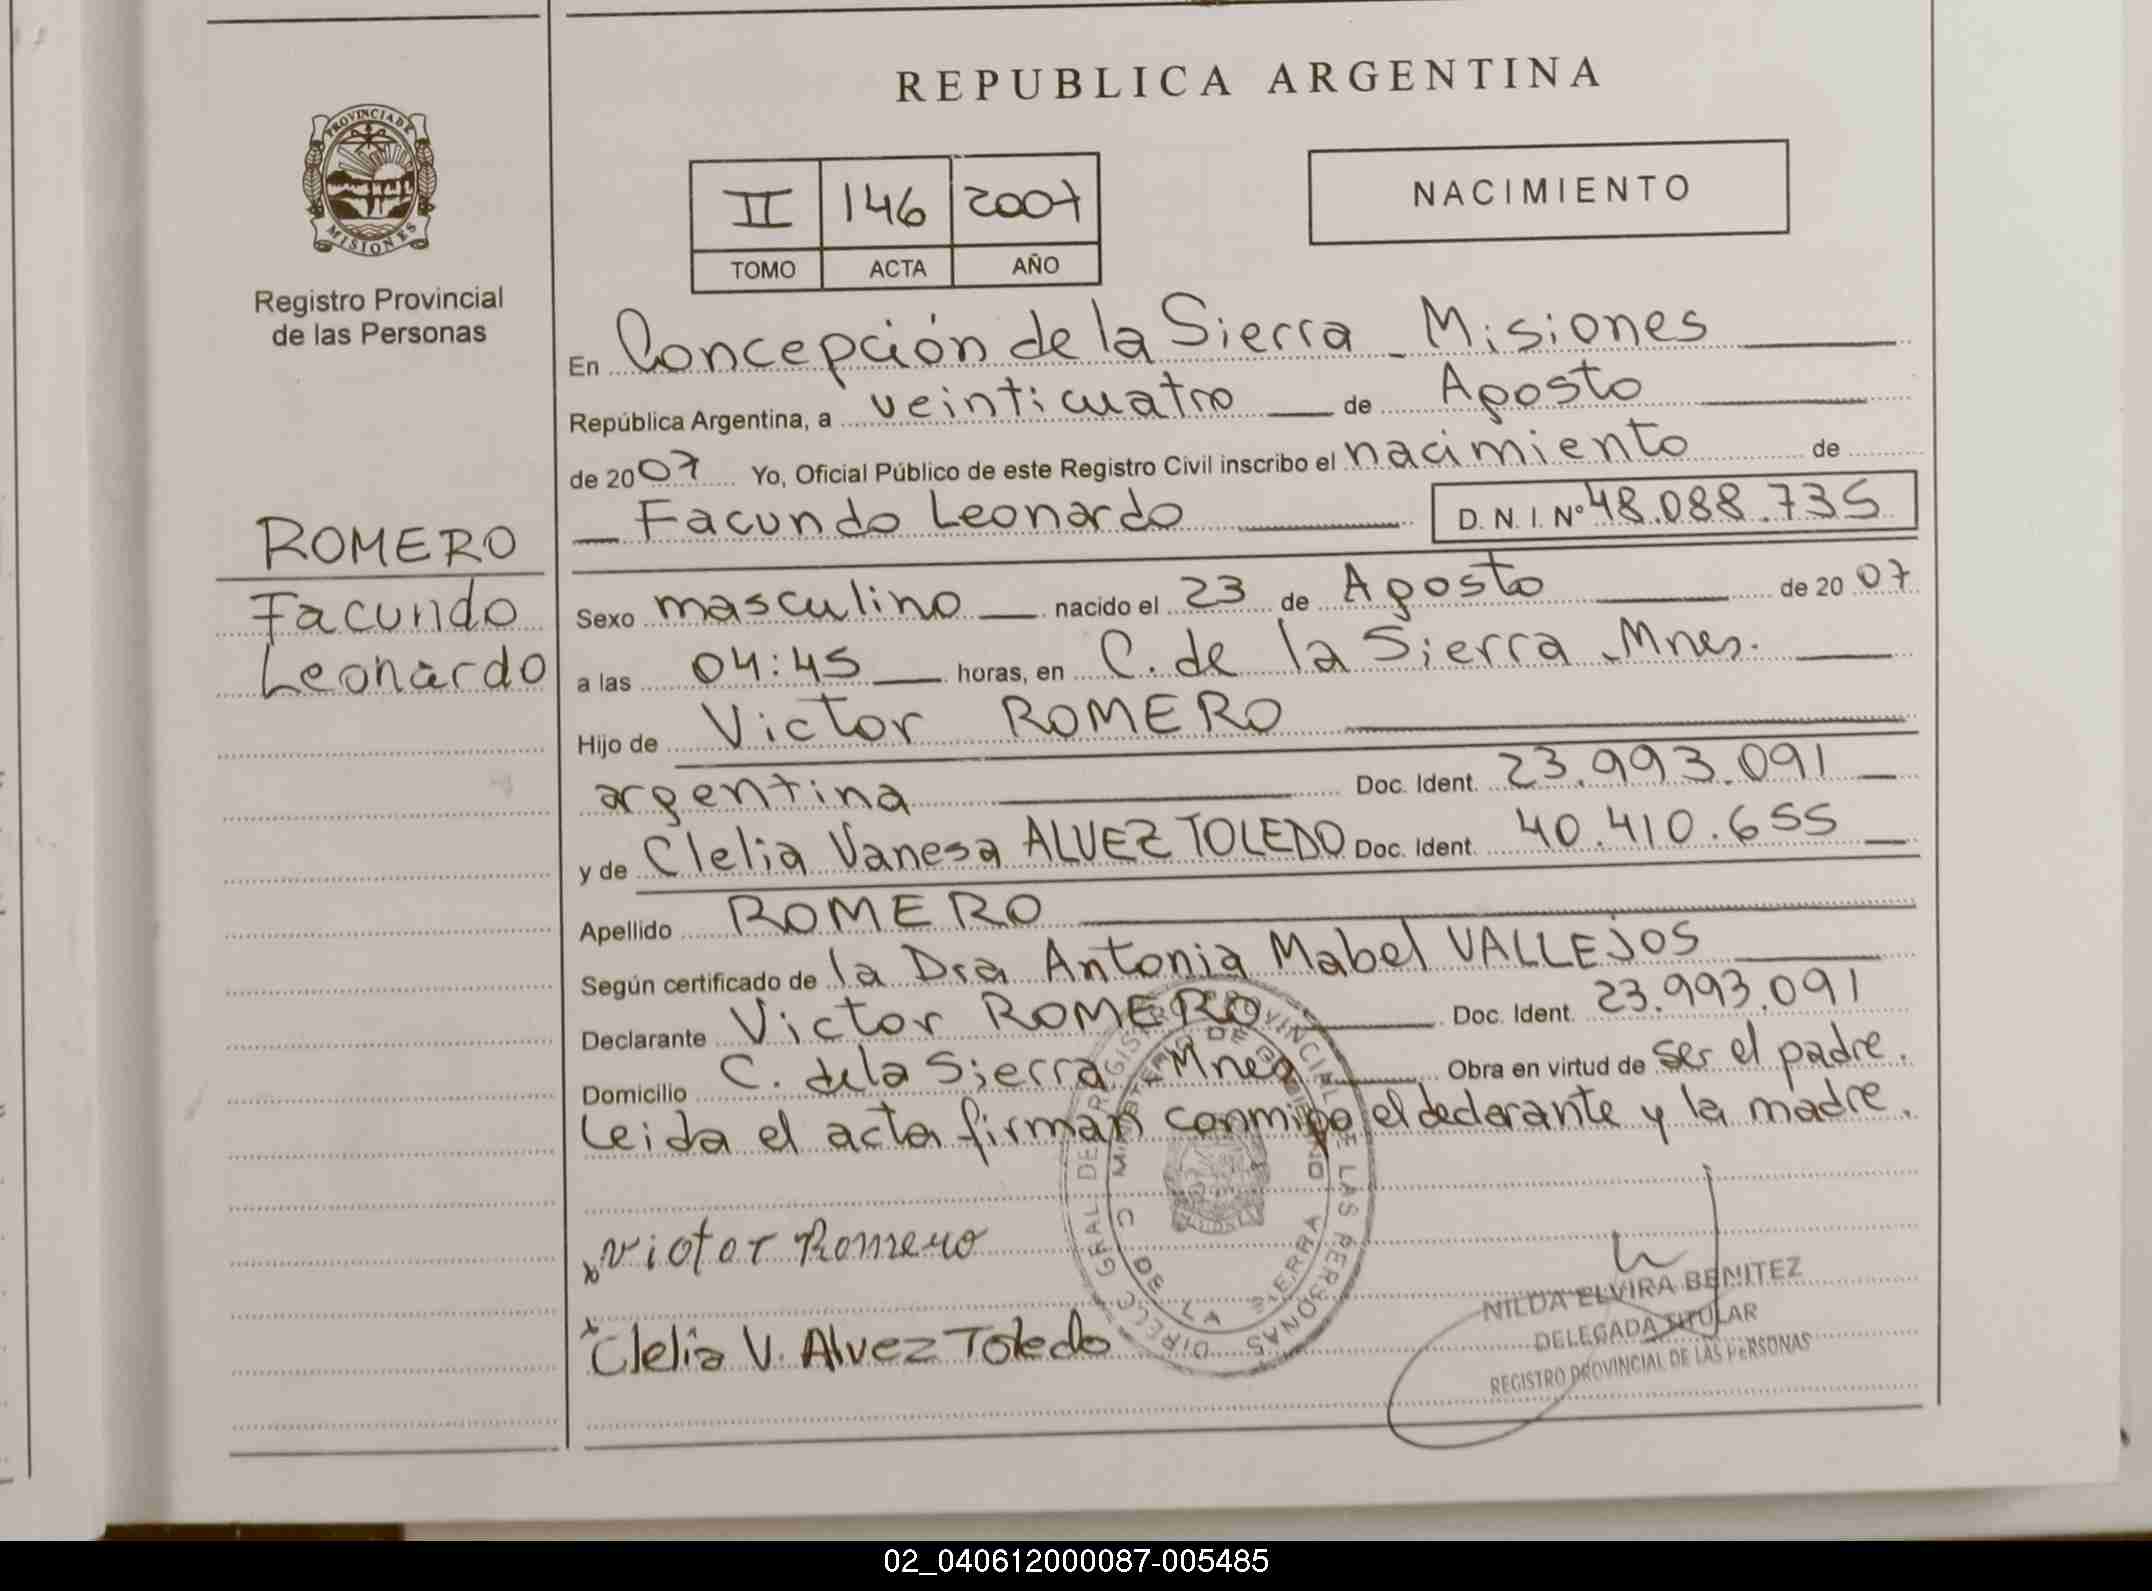 REPUBLICA ARGENTINA
PROVINCIA DE
MISIONES
Registro Provincial
de las Personas
II 146 2007
TOMO ACTA AÑO
NACIMIENTO
En Concepción de la Sierra - Misiones
República Argentina, a veinticuatro de Agosto
de 2007 Yo, Oficial Público de este Registro Civil inscribo el nacimiento de
Facundo Leonardo D. N. I. Nº 48.088.735
ROMERO
Facundo
Leonardo
Sexo masculino nacido el 23 de Agosto de 2007
a las 04:45 horas, en C. de la Sierra - Mnes.
Hijo de Victor ROMERO
argentina Doc. Ident. 23.993.091
y de Clelia Vanesa ALVEZ TOLEDO Doc. Ident. 40.410.655
Apellido ROMERO
Según certificado de la Dra Antonia Mabel VALLEJOS
Declarante Victor ROMERO Doc. Ident. 23.993.091
Domicilio C. de la Sierra - Mnes Obra en virtud de ser el padre.
Leida el acta firman conmigo el declarante y la madre.
x Victor Romero
x Clelia V. Alvez Toledo
DIRECC. GRAL DE REGISTRO PROVINCIAL DE LAS PERSONAS
MINISTERIO DE GOBIERNO
C. DE LA SIERRA
NILDA ELVIRA BENITEZ
DELEGADA TITULAR
REGISTRO PROVINCIAL DE LAS PERSONAS
02_040612000087-005485